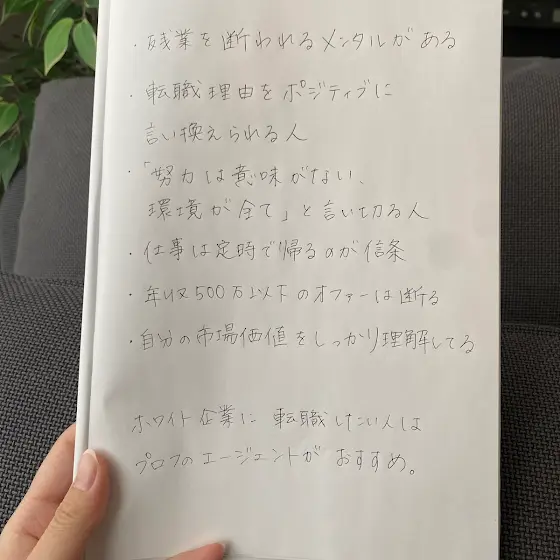 ・残業を断われるメンタルがある
・転職理由をポジティブに
言い換えられる人
・「努力は意味がない、
環境が全て」と言い切る人
・仕事は定時で帰るのが信条
・年収500万以下のオファーは断る
・自分の市場価値をしっかり理解してる
ホワイト企業に転職したい人は
プロフのエージェントがおすすめ。